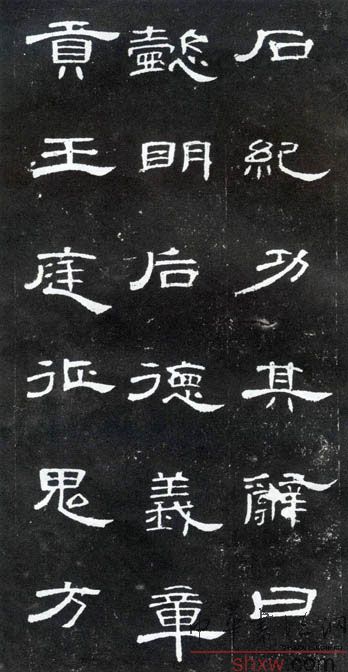 石紀功其辭曰
懿明后德義章
貢王庭征鬼方
shxw.com